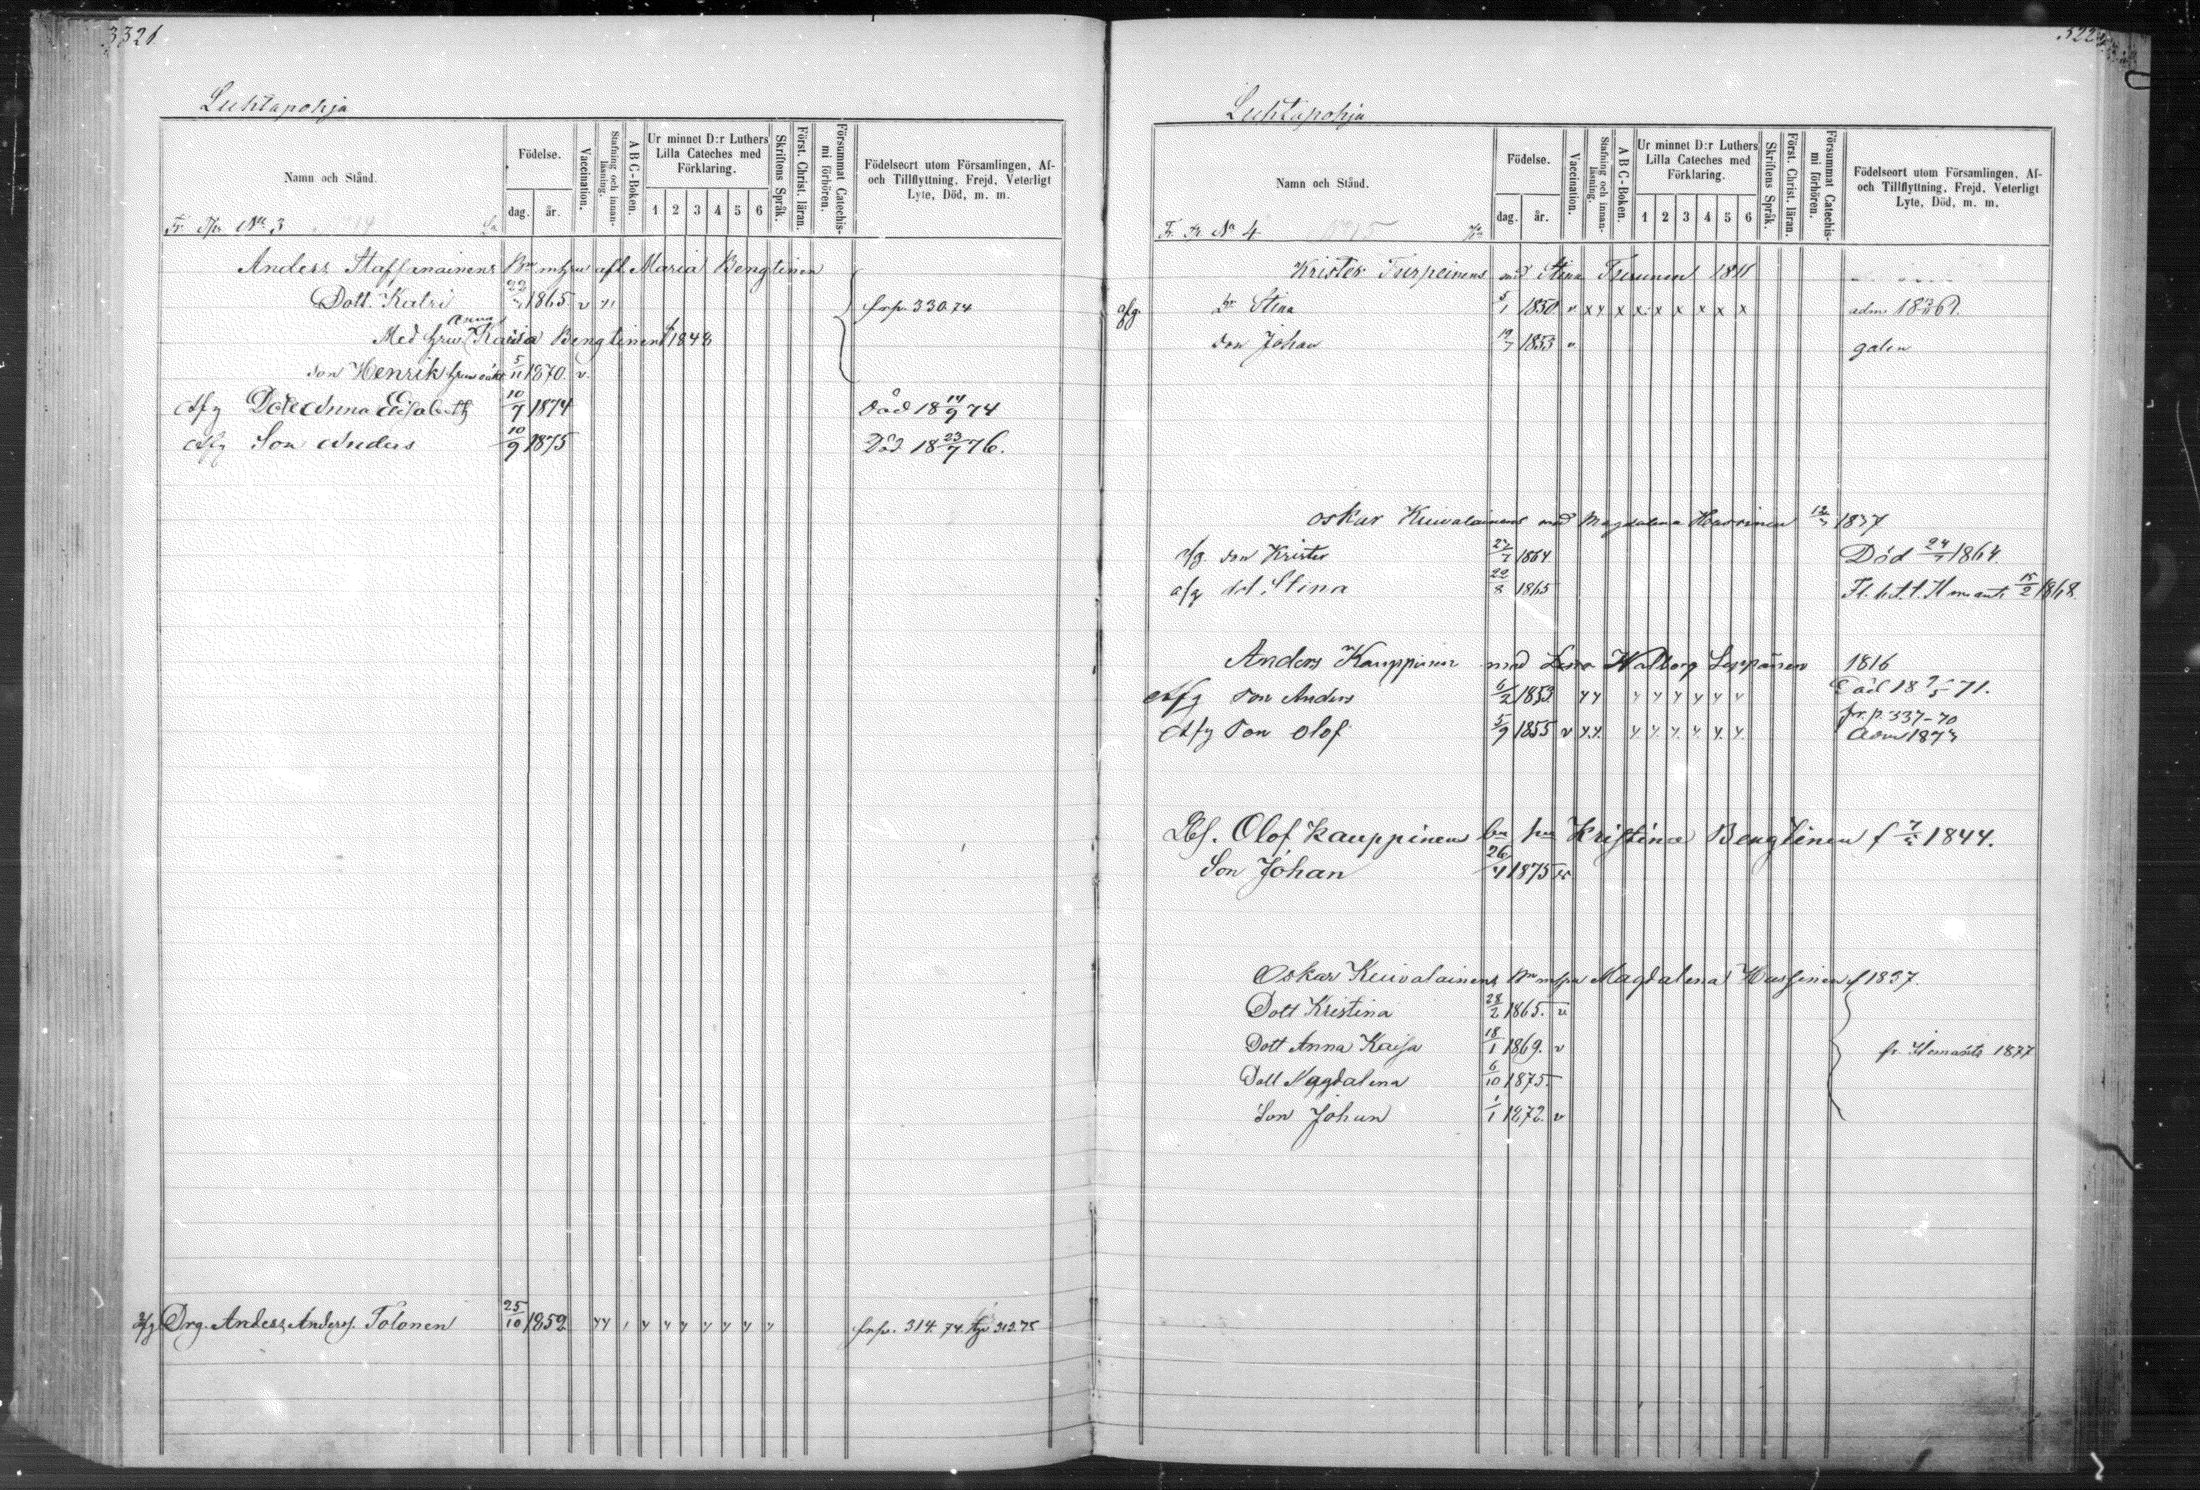 3321
Luhtapohja
Namn och Stånd.
Födelse.
dag.
år.
Vaccination.
Stafning och innanläsning.
A B C-Boken.
Ur minnet D:r Luthers Lilla Cateches med Förklaring.
1 2 3 4 5 6
Skriftens Språk.
Först. Christ. läran.
Försummat Catechismi förhören.
Födelseort utom Församlingen, Af- och Tillflyttning, Frejd, Veterligt Lyte, Död, m. m.
No 3
Anders Staffanainens Bn m hru afl. Maria Bengtinen
Dott. Katri 22 1865 v frp. 330.74
Med hru Anna Kaisa Bengtinen 1848
son Henrik 5/11 1870. v.
Afg Dott Anna Elisabeth 10/7 1874 Död 18 14/9 74
Afg Son Anders 10/9 1875 Död 18 23/7 76.
Afg Drg. Anders Anderss. Tolonen 25/10 1852 frp. 314. 74. 313.75
322
Luhtapohja
Namn och Stånd.
Födelse.
dag.
år.
Vaccination.
Stafning och innanläsning.
A B C-Boken.
Ur minnet D:r Luthers Lilla Cateches med Förklaring.
1 2 3 4 5 6
Skriftens Språk.
Först. Christ. läran.
Försummat Catechismi förhören.
Födelseort utom Församlingen, Af- och Tillflyttning, Frejd, Veterligt Lyte, Död, m. m.
No 4
Krister Turpeinens med Stina Turunen 1811
afg. Dr Stina 5/1 1850 v x x x x x x x x x adm 1867.
son Johan 1853 v galen
Oskar Kuivalainens med Magdalena Hassinen 12 1837
afg. son Krister 27/7 1864 Död 24/7 1864.
afg dot. Stina 22/8 1865 Fl. b.t.t. Ilomants 15/2 1868.
Anders Kauppinen med Lena Walborg Leppänen 1816
Afg son Anders 6/2 1853 Död 18 71.
fr. p. 337-70
Afg son Olof 5/9 1855 v Adm 1873
Olof Kauppinens bn hru Kristina Bengtinen f 7 1844.
Son Johan 26 1875 v
Oskar Kuivalainens Bn m hru Magdalena Hassinen f 1837.
Dott Kristina 28/2 1865. v
Dott Anna Kaisa 18/1 1869. v fr. Ilomants 1877
Dott Magdalena 6/10 1875.
Son Johan 1/1 1872. v